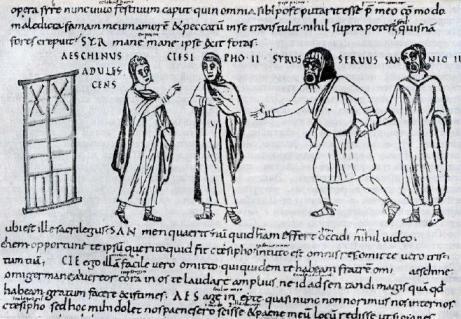 opera syre nunc uiuo festiuum caput quin omnia sibi post putarit esse p meo cōmodo
maledicta famam meum amorē & peccatū in se transtulit nihil supra potest quisnā
fores crepuit SYR mane mane ipse exit foras
AESCHINUS CTESIPHO II SYRUS SERUUS SANNIO II
ADULES
CENS
ubi est ille sacrilegus SAN men quaerit nū quid nam effert occidi nihil uideo
ehem opportune te ipsū querito quid fit ctesipho in tuto est omnis res omitte uero tris
tuā CTE ego illā facile uero omitto qui quidem te habeam fratrem o mi aeschine
o mi germane a uereor coram in os te laudare amplius ne id adsentandi magis quā qd
habeam gratum facere existimes AES age inepte quasi nunc non norimus nos inter nos
ctesipho sed hoc mihi dolet nos paene sero scisse & paene in eū locū redisse ut si omnes